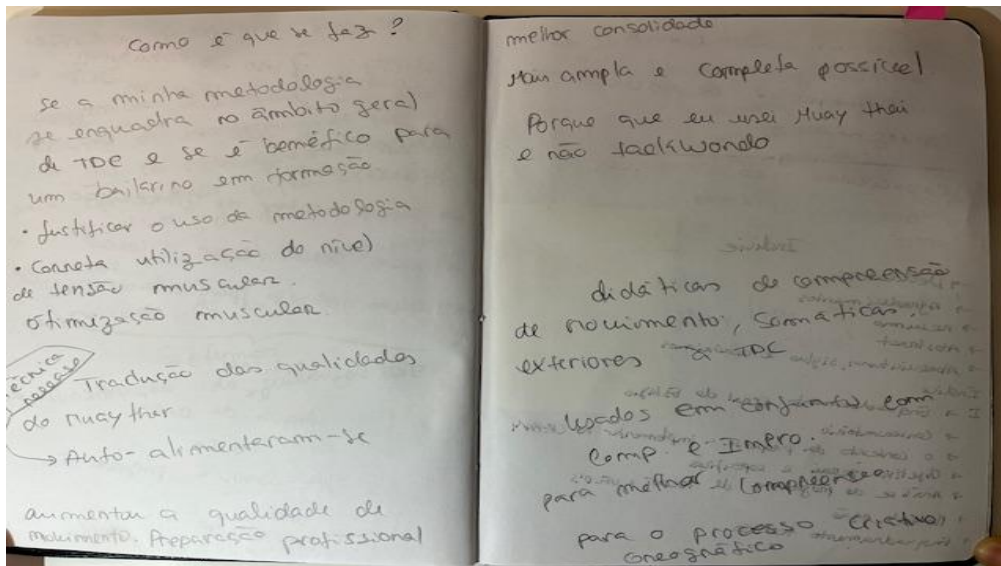 Como é que se faz?
se a minha metodologia
se enquadra no âmbito geral
de TDC e se é benéfico para
um bailarino em formação
• Justificar o uso da metodologia
• Correta utilização do nível
de tensão muscular.
otimização muscular
Técnica
Tradução das qualidades
do muay thai
→ Auto-alimentaram-se
aumentou a qualidade de
movimento. Preparação profissional
melhor consolidado
Mais ampla e completa possível
Porque que eu usei Muay thai
e não taekwondo
didáticas de compreensão
de movimento, somáticas
exteriores a TDC
Usados em conjunto com
Comp. e Impro.
para melhor compreensão
para o processo criativo
coreográfico